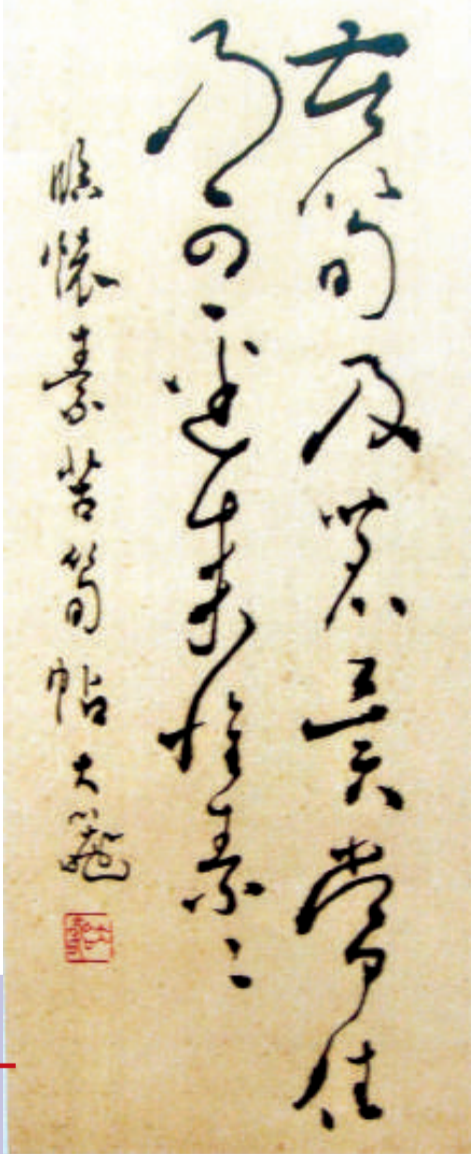 苦筍及茗異常佳
乃可逕來懷素上
臨懷素苦筍帖 大